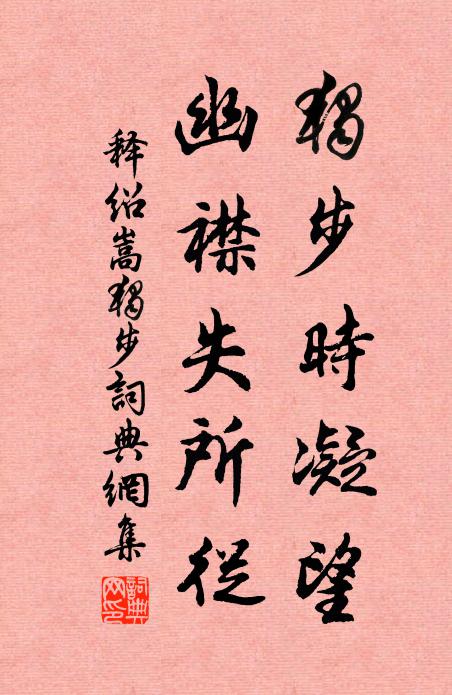 獨步時凝望
幽襟失所從
释绍嵩獨步詞典網集
詞典
网印